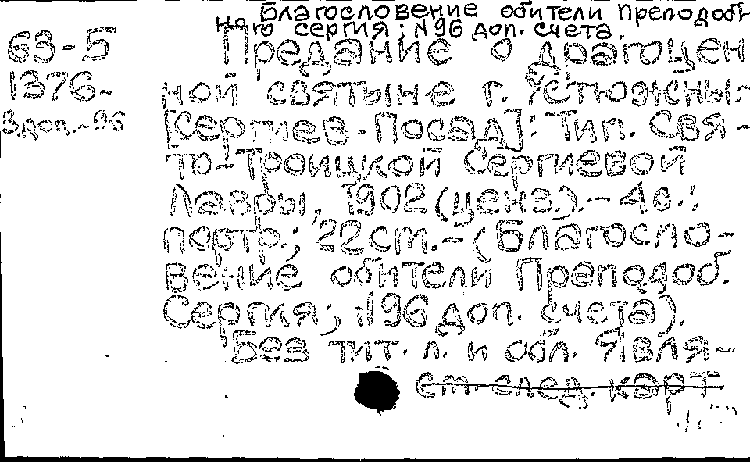 Благословение обители Преподоб-
ного Сергия; №96 доп. счета.
63-5 Предание о драгоцен
1376- ной святыне г. Устюжны.-
[Сергиев-Посад]: Тип. Свя-
то-Троицкой Сергиевой
Лавры, 1902 (ценз.).- 4с.:
портр.; 22см.-(Благосло-
вение обители Преподоб.
Сергия; №96 доп. счета).
Без тит. л. и обл. Явля-
ст. след. карт